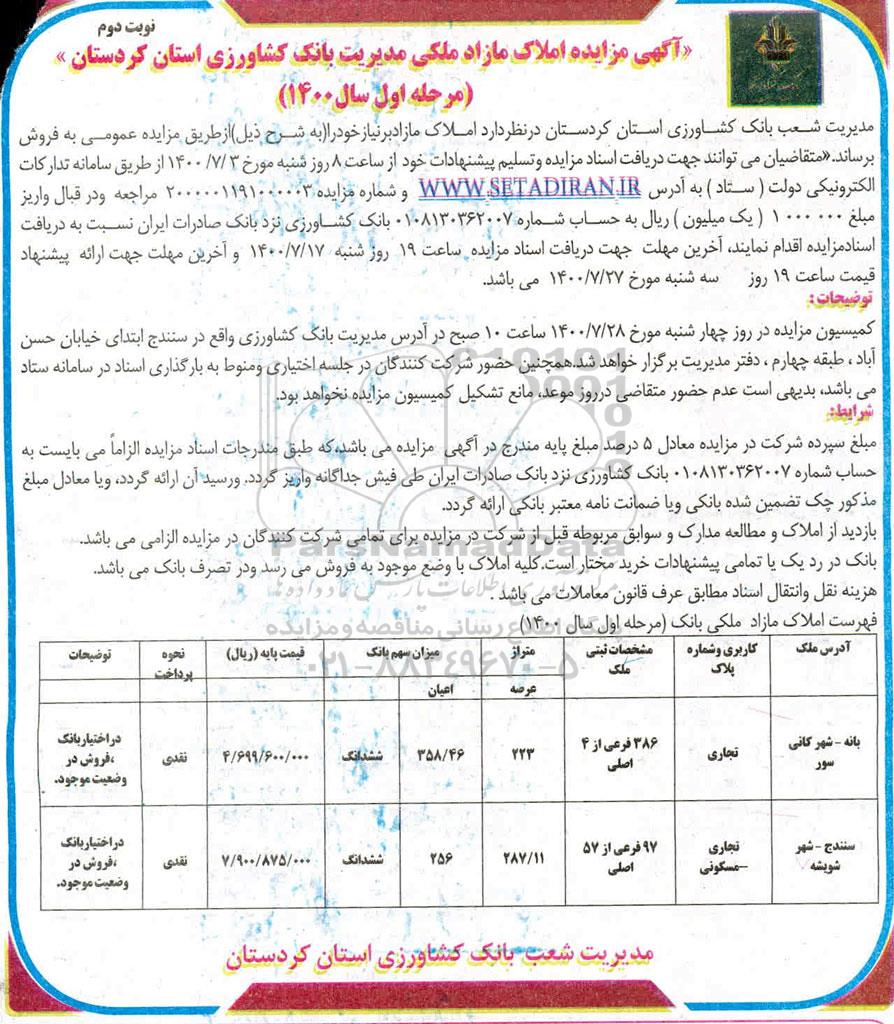 نوبت دوم
«آگهی مزایده املاک مازاد ملکی مدیریت بانک کشاورزی استان کردستان»
(مرحله اول سال ۱۴۰۰)
مدیریت شعب بانک کشاورزی استان کردستان درنظردارد املاک مازادبرنیازخودرا(به شرح ذیل)ازطریق مزایده عمومی به فروش
برساند.«متقاضیان می توانند جهت دریافت اسناد مزایده وتسلیم پیشنهادات خود از ساعت ۸ روز شنبه مورخ ۱۴۰۰/۷/۳ از طریق سامانه تدارکات
الکترونیکی دولت ( ستاد ) به آدرس WWW.SETADIRAN.IR و شماره مزایده ۲۰۰۰۰۰۱۱۹۱۰۰۰۰۰۳ مراجعه ودر قبال واریز
مبلغ ۱ ۰۰۰ ۰۰۰ ( یک میلیون ) ریال به حساب شماره ۰۱۰۸۱۳۰۳۶۲۰۰۷ بانک کشاورزی نزد بانک صادرات ایران نسبت به دریافت
اسنادمزایده اقدام نمایند، آخرین مهلت جهت دریافت اسناد مزایده ساعت ۱۹ روز شنبه ۱۴۰۰/۷/۱۷ و آخرین مهلت جهت ارائه پیشنهاد
قیمت ساعت ۱۹ روز سه شنبه مورخ ۱۴۰۰/۷/۲۷ می باشد.
توضیحات:
کمیسیون مزایده در روز چهار شنبه مورخ ۱۴۰۰/۷/۲۸ ساعت ۱۰ صبح در آدرس مدیریت بانک کشاورزی واقع در سنندج ابتدای خیابان حسن
آباد ، طبقه چهارم ، دفتر مدیریت برگزار خواهد شد.همچنین حضور شرکت کنندگان در جلسه اختیاری ومنوط به بارگذاری اسناد در سامانه ستاد
می باشد، بدیهی است عدم حضور متقاضی درروز موعد، مانع تشکیل کمیسیون مزایده نخواهد بود.
شرایط:
مبلغ سپرده شرکت در مزایده معادل ۵ درصد مبلغ پایه مندرج در آگهی مزایده می باشد،که طبق مندرجات اسناد مزایده الزاماً می بایست به
حساب شماره ۰۱۰۸۱۳۰۳۶۲۰۰۷ بانک کشاورزی نزد بانک صادرات ایران طی فیش جداگانه واریز گردد. ورسید آن ارائه گردد، ویا معادل مبلغ
مذکور چک تضمین شده بانکی ویا ضمانت نامه معتبر بانکی ارائه گردد.
بازدید از املاک و مطالعه مدارک و سوابق مربوطه قبل از شرکت در مزایده برای تمامی شرکت کنندگان در مزایده الزامی می باشد.
بانک در رد یک یا تمامی پیشنهادات خرید مختار است.کلیه املاک با وضع موجود به فروش می رسد ودر تصرف بانک می باشد.
هزینه نقل وانتقال اسناد مطابق عرف قانون معاملات می باشد .
فهرست املاک مازاد ملکی بانک (مرحله اول سال ۱۴۰۰)
ParsNamadData
پایگاه اطلاع رسانی مناقصه و مزایده
۰۲۱-۸۸۳۴۹۶۷۰-۵
آدرس ملک کاربری وشماره پلاک مشخصات ثبتی ملک متراژ عرصه میزان سهم بانک قیمت پایه (ریال) نحوه پرداخت توضیحات
اعیان
بانه - شهر کانی سور تجاری ۳۸۶ فرعی از ۴ اصلی ۲۲۳ ۳۵۸/۴۶ ششدانگ ۴/۶۹۹/۶۰۰/۰۰۰ نقدی دراختیاربانک ،فروش در وضعیت موجود.
سنندج - شهر شویشه تجاری –مسکونی ۹۷ فرعی از ۵۷ اصلی ۲۸۷/۱۱ ۲۵۶ ششدانگ ۷/۹۰۰/۸۷۵/۰۰۰ نقدی دراختیاربانک ،فروش در وضعیت موجود.
مدیریت شعب بانک کشاورزی استان کردستان